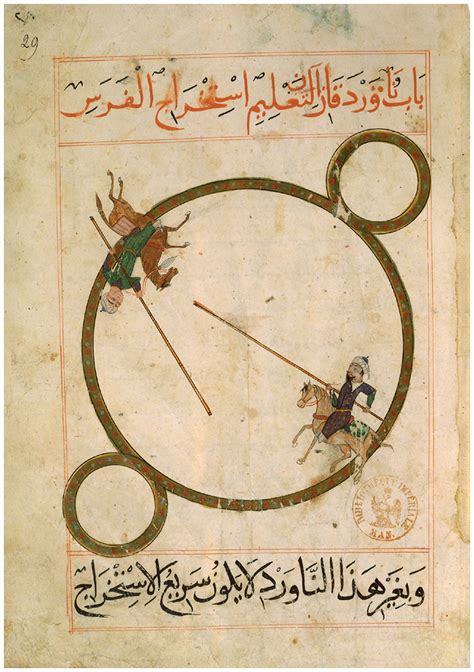 29
باب ناورد قازان لتعليم استخراج الفرس
BIBLIOTHEQUE IMPERIALE MAN.
وبغير هذا الناورد لا يكون سريع الاستخراج